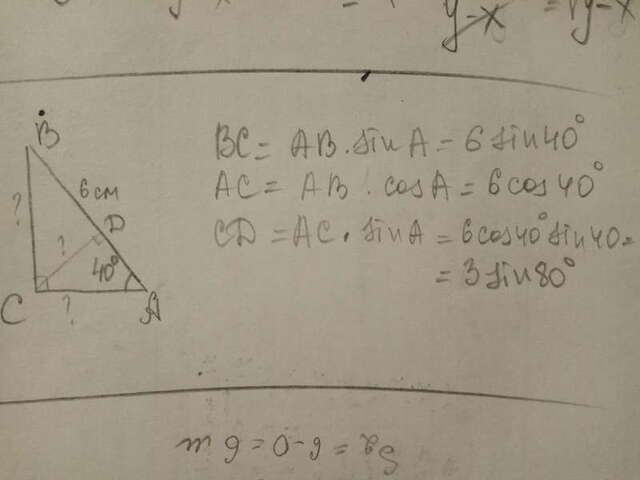 y-x = √y-x
B
6 см
?
D
?
40°
C
?
A
BC = AB · sin A = 6 sin 40°
AC = AB · cos A = 6 cos 40°
CD = AC · sin A = 6 cos 40° sin 40 =
= 3 sin 80°
S₂ = 6-0 = 6 m